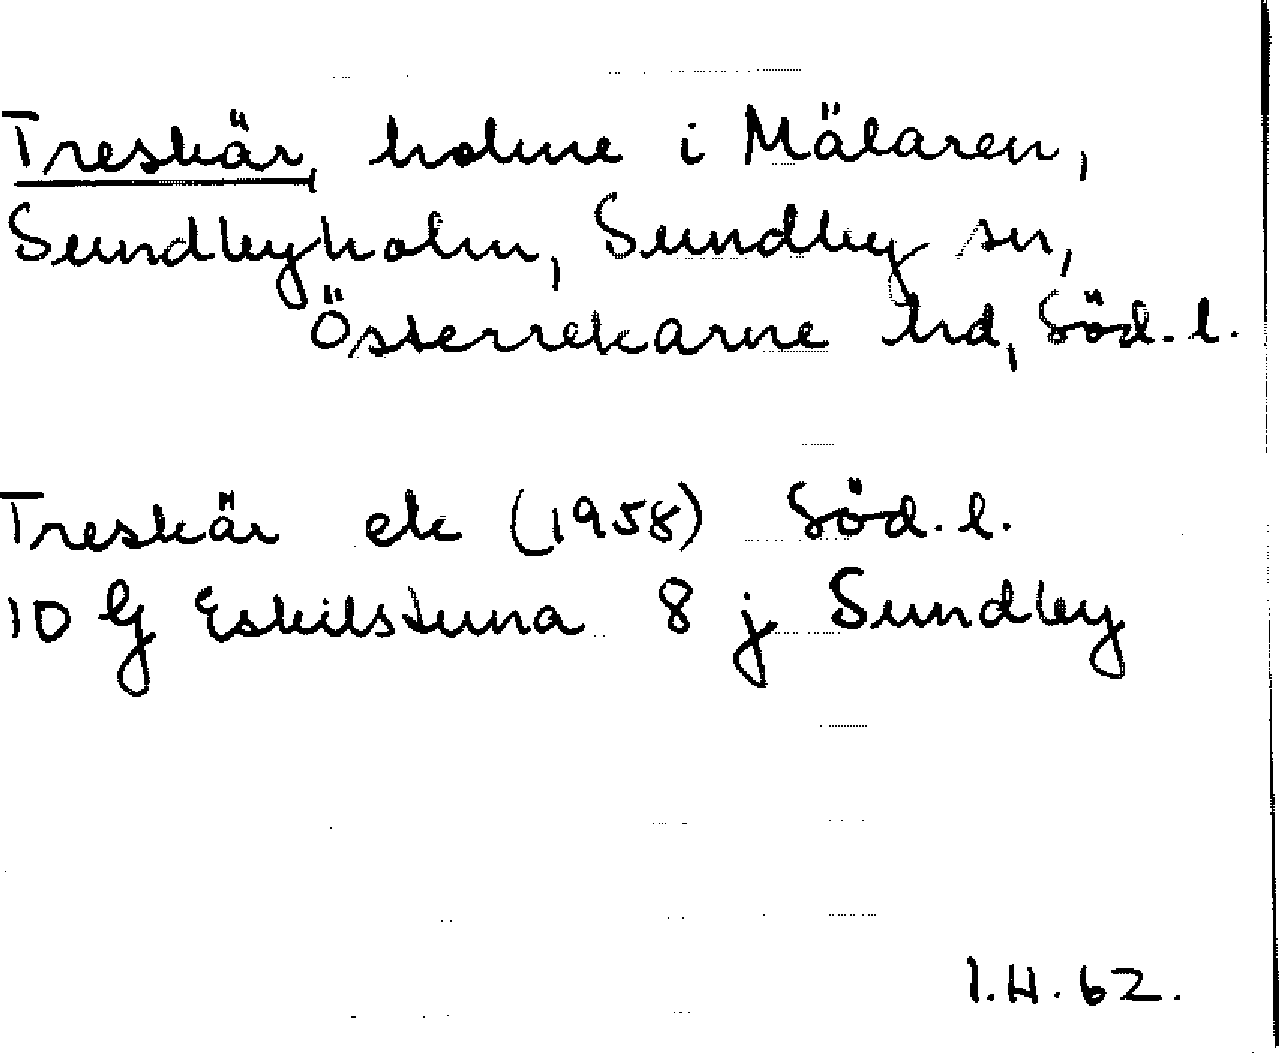 Treskär, holme i Mälaren,
Sundbyholm, Sundby sn,
Österrekarne hd, Söd.l.
Treskär ek (1958) Söd.l.
10 G Eskilstuna 8 j Sundby
I.H.62.